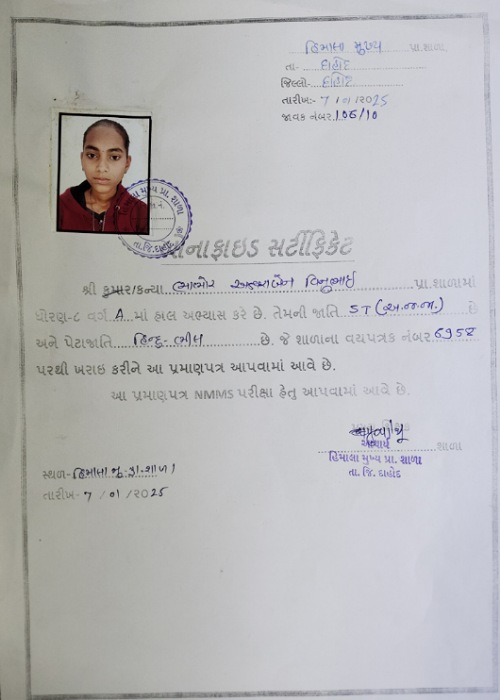 હિમાલા મુખ્ય પ્રા.શાળા
તા- દાહોદ
જિલ્લો- દાહોદ
તારીખ:- 7/01/2025
જાવક નંબર.106/10
બોનાફાઇડ સર્ટીફિકેટ
શ્રી કુમાર/કન્યા ભાભોર વિનુભાઇ પ્રા.શાળામાં
ધોરણ-૮ વર્ગ A માં હાલ અભ્યાસ કરે છે. તેમની જાતિ ST (અ.જ.જા.) છે
અને પેટાજાતિ હિન્દુ-ભીલ છે. જે શાળાના વયપત્રક નંબર.6958
પરથી ખરાઇ કરીને આ પ્રમાણપત્ર આપવામાં આવે છે.
આ પ્રમાણપત્ર NMMS પરીક્ષા હેતુ આપવામાં આવે છે.
આચાર્ય
શાળા
હિમાલા મુખ્ય પ્રા. શાળા
તા. જિ. દાહોદ
સ્થળ- હિમાલા મુ.પ્રા.શાળા
તારીખ- 7/01/2025